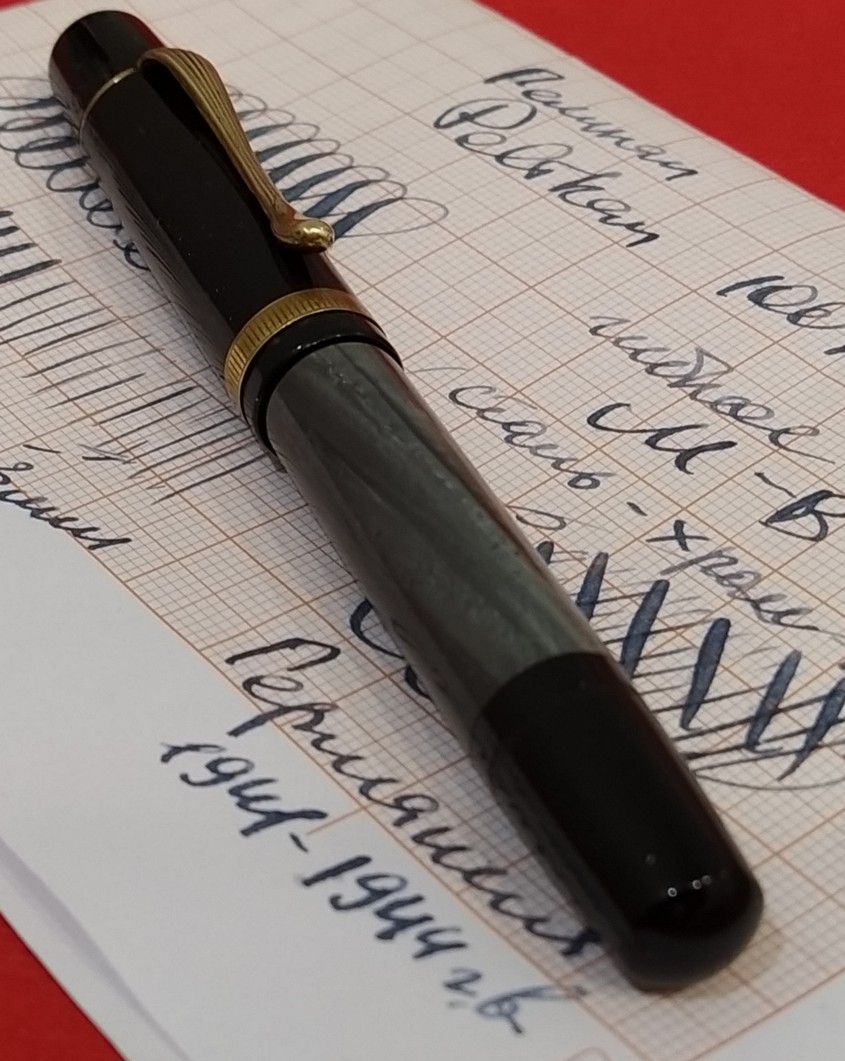 Пеликан
Pelikan
100
гибкое
M - B
сталь - хром
Германия
1941-1944 г.в